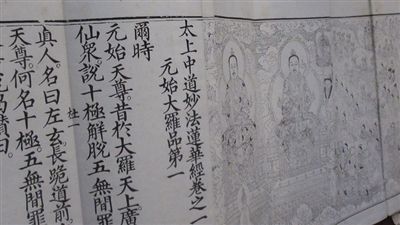 太上中道妙法蓮華經卷之一
元始大羅品第一
爾時
元始天尊。昔於大羅天上。廣
仙衆。說十極解脫五無間罪
真人。名曰左玄。長跪道前。
天尊。何名十極。五無間罪